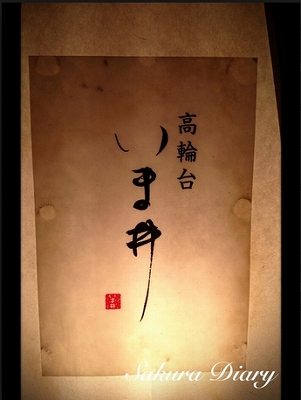 高輪台
いま井
Sakura Diary